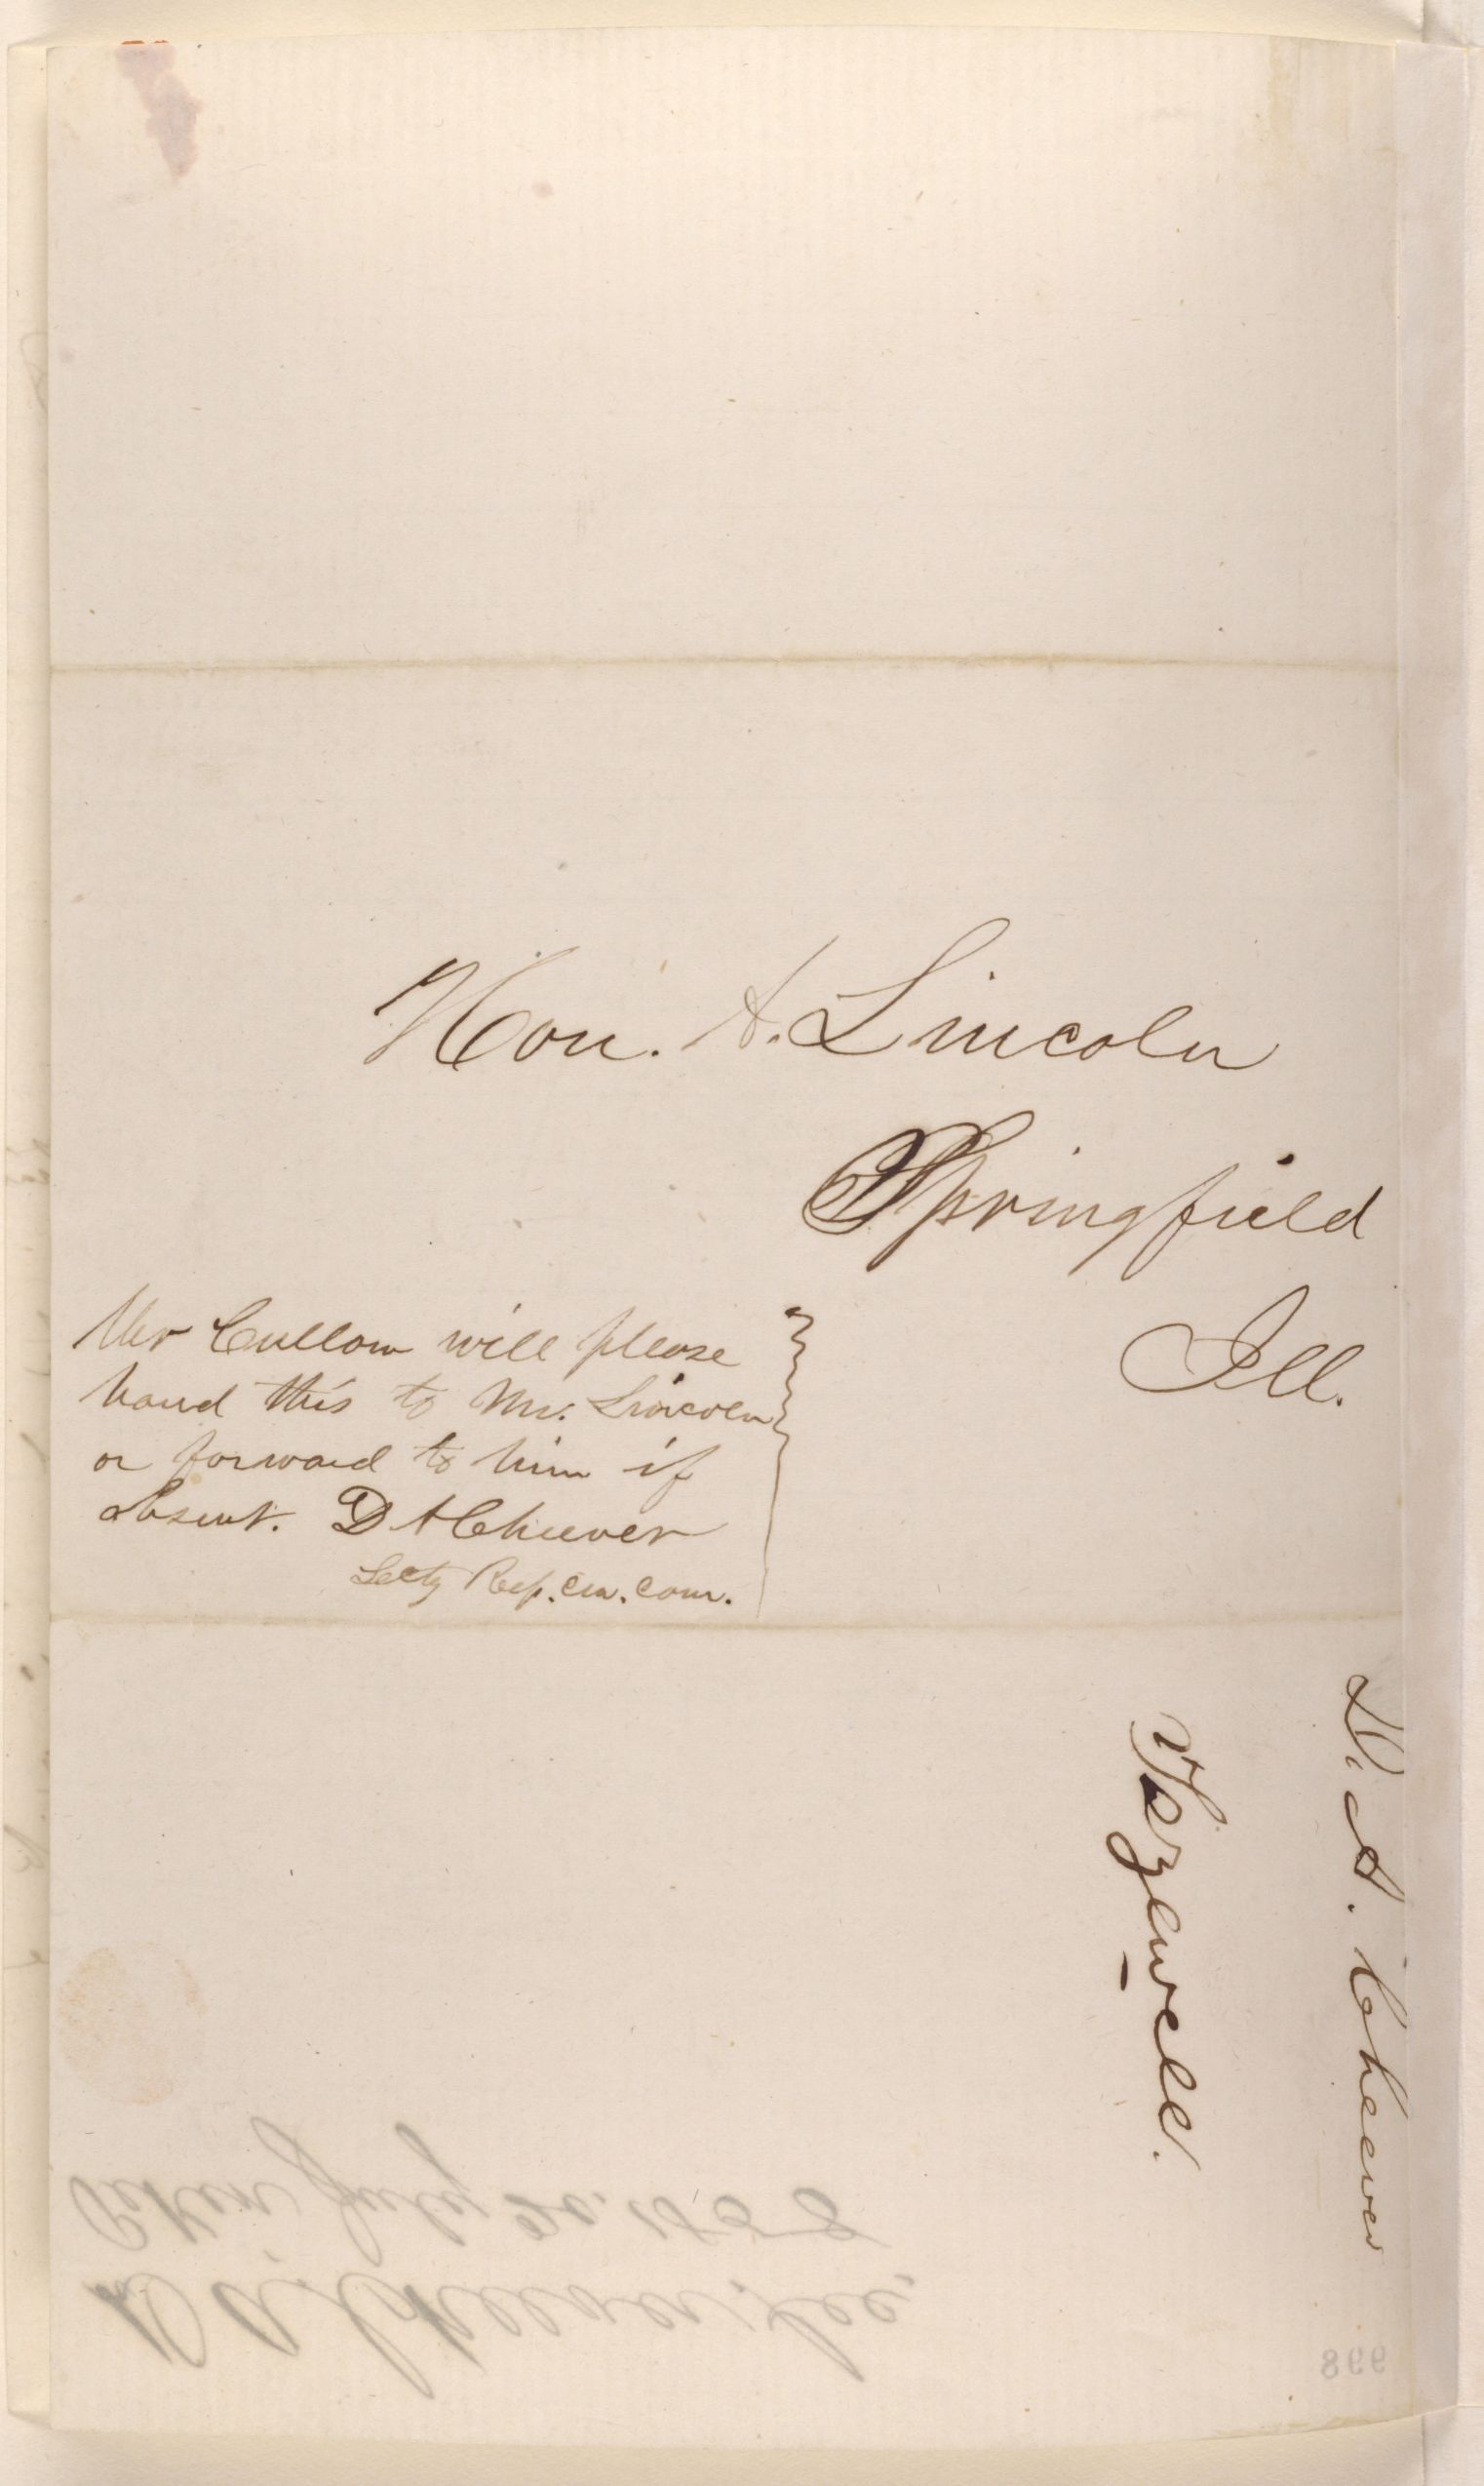 Hon. A. Lincoln
Springfield
Ill.
Mr Cullom will please
hand this to Mr. Lincoln
or forward to him if
absent. D A Cheever
Secty Rep. Cen. Com.
D. A. Cheever
Tazewell.
Pekin July 20. 1858
D. A. Cheever, Sec.
998